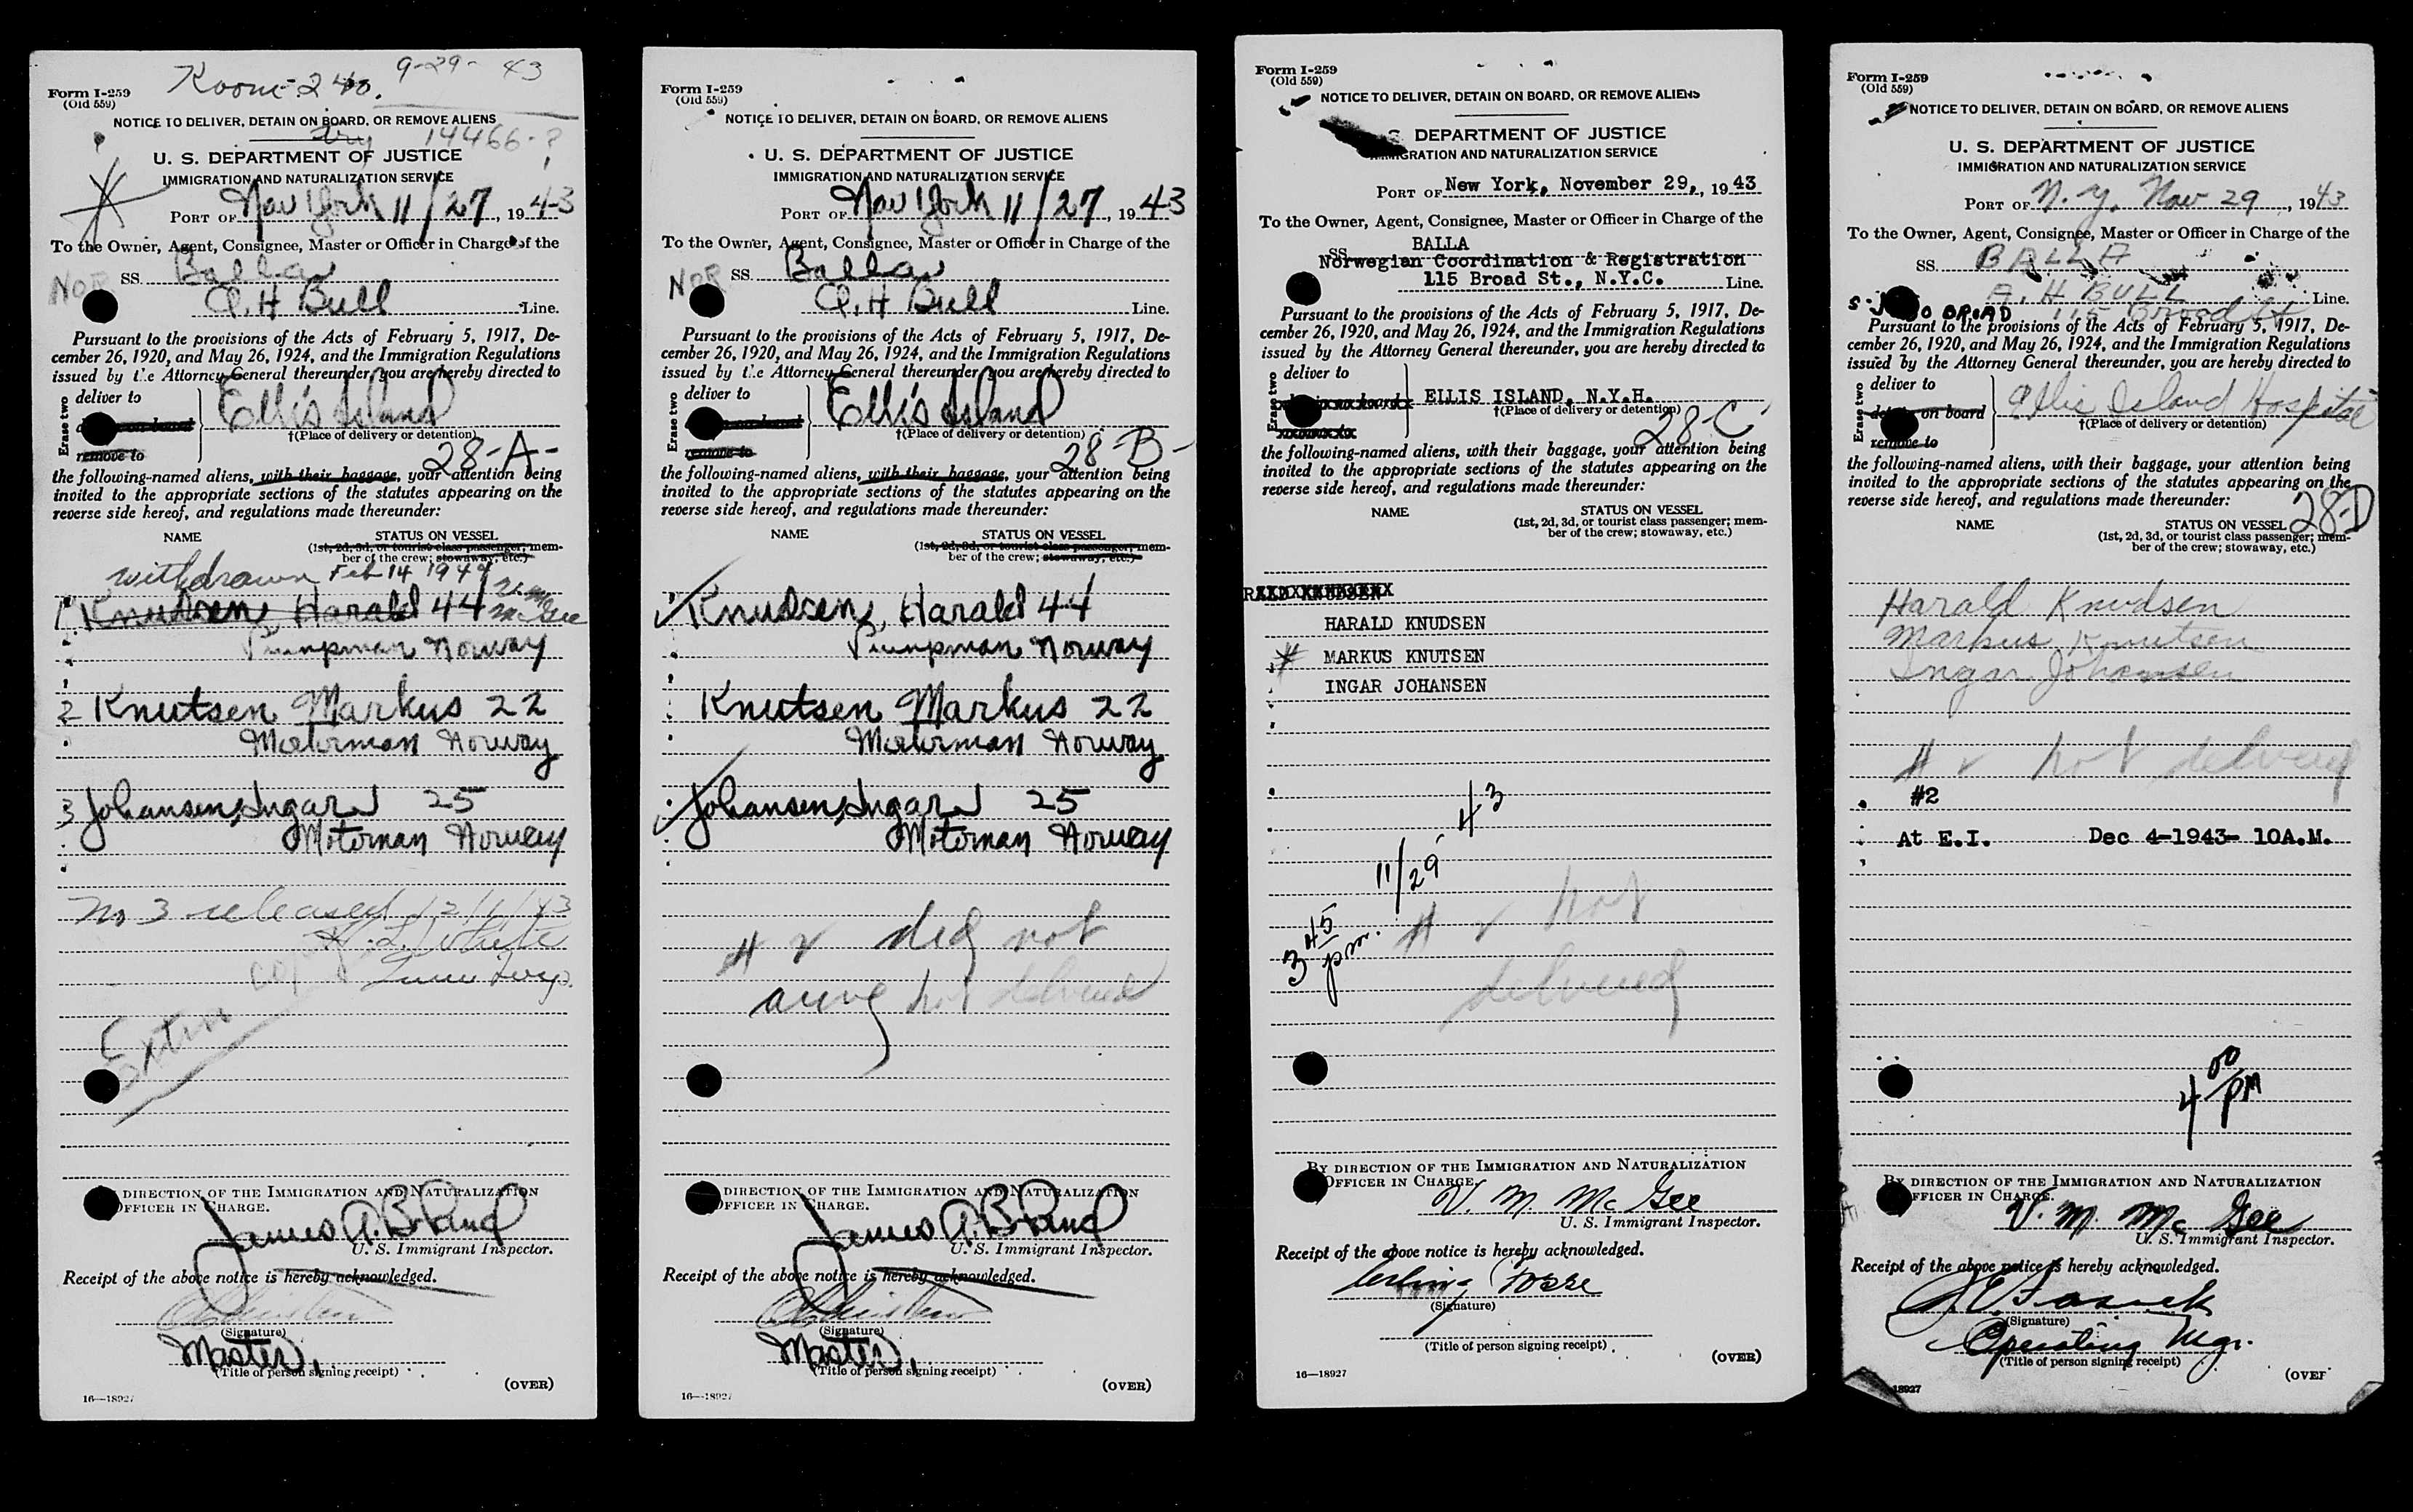 Room 240. 9-29-43
Form I-259
(Old 559)
NOTICE TO DELIVER, DETAIN ON BOARD, OR REMOVE ALIENS
14466-?
U. S. DEPARTMENT OF JUSTICE
IMMIGRATION AND NATURALIZATION SERVICE
PORT OF New York 11/27, 1943
To the Owner, Agent, Consignee, Master or Officer in Charge of the
NOR SS. Balla
A. H Bull Line.
Pursuant to the provisions of the Acts of February 5, 1917, De-
cember 26, 1920, and May 26, 1924, and the Immigration Regulations
issued by the Attorney General thereunder you are hereby directed to
Erase two
deliver to
on board
remove to
Ellis Island
†(Place of delivery or detention)
28-A-
the following-named aliens, with their baggage, your attention being
invited to the appropriate sections of the statutes appearing on the
reverse side hereof, and regulations made thereunder:
NAME STATUS ON VESSEL
(1st, 2d, 3d, or tourist class passenger; mem-
ber of the crew; stowaway, etc.)
withdrawn Feb 14 1944
1 Knudsen, Harald 44
Pumpman Norway
2 Knutsen Markus 22
Motorman Norway
3 Johansen, Ingar 25
Motorman Norway
No 3 released 12/1/43
H. L. White
Extra copy
DIRECTION OF THE IMMIGRATION AND NATURALIZATION
OFFICER IN CHARGE.
James A. Brand
U. S. Immigrant Inspector.
Receipt of the above notice is hereby acknowledged.
(Signature)
Master,
(Title of person signing receipt)
(OVER)
16—18927
Form I-259
(Old 559)
NOTICE TO DELIVER, DETAIN ON BOARD, OR REMOVE ALIENS
U. S. DEPARTMENT OF JUSTICE
IMMIGRATION AND NATURALIZATION SERVICE
PORT OF New York 11/27, 1943
To the Owner, Agent, Consignee, Master or Officer in Charge of the
NOR SS. Balla
A. H Bull Line.
Pursuant to the provisions of the Acts of February 5, 1917, De-
cember 26, 1920, and May 26, 1924, and the Immigration Regulations
issued by the Attorney General thereunder you are hereby directed to
Erase two
deliver to
on board
remove to
Ellis Island
†(Place of delivery or detention)
28-B-
the following-named aliens, with their baggage, your attention being
invited to the appropriate sections of the statutes appearing on the
reverse side hereof, and regulations made thereunder:
NAME STATUS ON VESSEL
(1st, 2d, 3d, or tourist class passenger; mem-
ber of the crew; stowaway, etc.)
Knudsen, Harald 44
Pumpman Norway
Knutsen Markus 22
Motorman Norway
Johansen, Ingar 25
Motorman Norway
# 2 did not
arrive not delivered
DIRECTION OF THE IMMIGRATION AND NATURALIZATION
OFFICER IN CHARGE.
James A. Brand
U. S. Immigrant Inspector.
Receipt of the above notice is hereby acknowledged.
(Signature)
Master,
(Title of person signing receipt)
(OVER)
16—18927
Form I-259
(Old 559)
NOTICE TO DELIVER, DETAIN ON BOARD, OR REMOVE ALIENS
S. DEPARTMENT OF JUSTICE
IMMIGRATION AND NATURALIZATION SERVICE
PORT OF New York, November 29, 1943
To the Owner, Agent, Consignee, Master or Officer in Charge of the
SS. BALLA
Norwegian Coordination & Registration
115 Broad St., N.Y.C. Line.
Pursuant to the provisions of the Acts of February 5, 1917, De-
cember 26, 1920, and May 26, 1924, and the Immigration Regulations
issued by the Attorney General thereunder, you are hereby directed to
Erase two
deliver to
ELLIS ISLAND, N.Y.H.
†(Place of delivery or detention)
28-C
the following-named aliens, with their baggage, your attention being
invited to the appropriate sections of the statutes appearing on the
reverse side hereof, and regulations made thereunder:
NAME STATUS ON VESSEL
(1st, 2d, 3d, or tourist class passenger; mem-
ber of the crew; stowaway, etc.)
HARALD KNUDSEN
# MARKUS KNUTSEN
INGAR JOHANSEN
11/29 43
3 45 pm.
# 2 not
delivered
BY DIRECTION OF THE IMMIGRATION AND NATURALIZATION
OFFICER IN CHARGE.
V. M. McGee
U. S. Immigrant Inspector.
Receipt of the above notice is hereby acknowledged.
(Signature)
(Title of person signing receipt)
(OVER)
16—18927
Form I-259
(Old 559)
NOTICE TO DELIVER, DETAIN ON BOARD, OR REMOVE ALIENS
U. S. DEPARTMENT OF JUSTICE
IMMIGRATION AND NATURALIZATION SERVICE
PORT OF N. Y. Nov 29, 1943
To the Owner, Agent, Consignee, Master or Officer in Charge of the
SS. BALLA
A. H BULL Line.
BROAD 115 Broad St
Pursuant to the provisions of the Acts of February 5, 1917, De-
cember 26, 1920, and May 26, 1924, and the Immigration Regulations
issued by the Attorney General thereunder, you are hereby directed to
Erase two
deliver to
on board
remove to
Ellis Island Hospital
†(Place of delivery or detention)
the following-named aliens, with their baggage, your attention being
invited to the appropriate sections of the statutes appearing on the
reverse side hereof, and regulations made thereunder:
28-D
NAME STATUS ON VESSEL
(1st, 2d, 3d, or tourist class passenger; mem-
ber of the crew; stowaway, etc.)
Harald Knudsen
Markus Knutsen
Ingar Johansen
# 2 not delivered
#2
At E.I. Dec 4-1943- 10A.M.
4 00 PM
BY DIRECTION OF THE IMMIGRATION AND NATURALIZATION
OFFICER IN CHARGE.
V. M. McGee
U. S. Immigrant Inspector.
Receipt of the above notice is hereby acknowledged.
(Signature)
Operating Mgr.
(Title of person signing receipt)
(OVER
18927